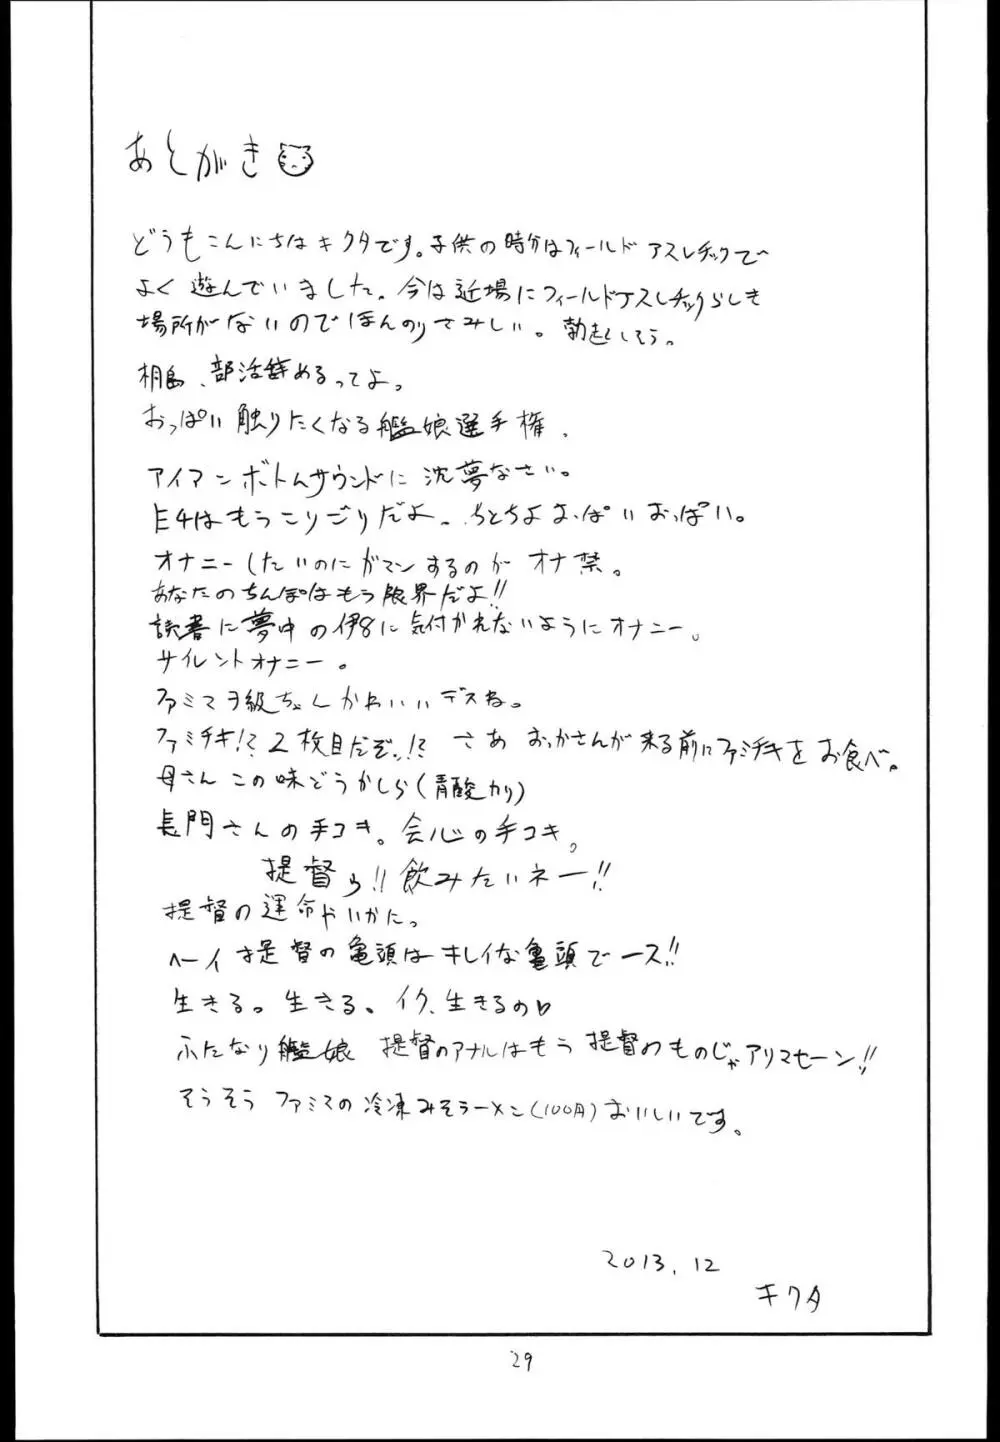 あとがき
どうもこんにちはキクタです。子供の時分はフィールドアスレチックで
よく遊んでいました。今は近場にフィールドアスレチックらしき
場所がないのでほんのりさみしい。勃起しそう。
桐島、部活辞めるってよ。
おっぱい触りたくなる艦娘選手権、
アイアンボトムサウンドに沈夢なさい。
E4はもうこりごりだよ、ちとちよおっぱいおっぱい。
オナニーしたいのにガマンするのがオナ禁。
あなたのちんぽはもう限界だよ!!
読書に夢中の伊8に気付かれないようにオナニー。
サイレントオナニー。
ファミマヲ級ちゃんかわいいデスね。
ファミチキ!?2枚目だぞっ!?さあおっかさんが来る前にファミチキをお食べ。
母さんこの味どうかしら(青酸カリ)
長門さんの手コキ。会心の手コキ。
提督ゥ!!飲みたいネー!!
提督の運命やいかにっ
ヘーイ提督の亀頭はキレイな亀頭でース!!
生きる。生きる。イク、生きるの♡
ふたなり艦娘 提督のアナルはもう提督のものじゃアリマセーン!!
そうそうファミマの冷凍みそラーメン(100円)おいしいです。
2013.12
キクタ
29